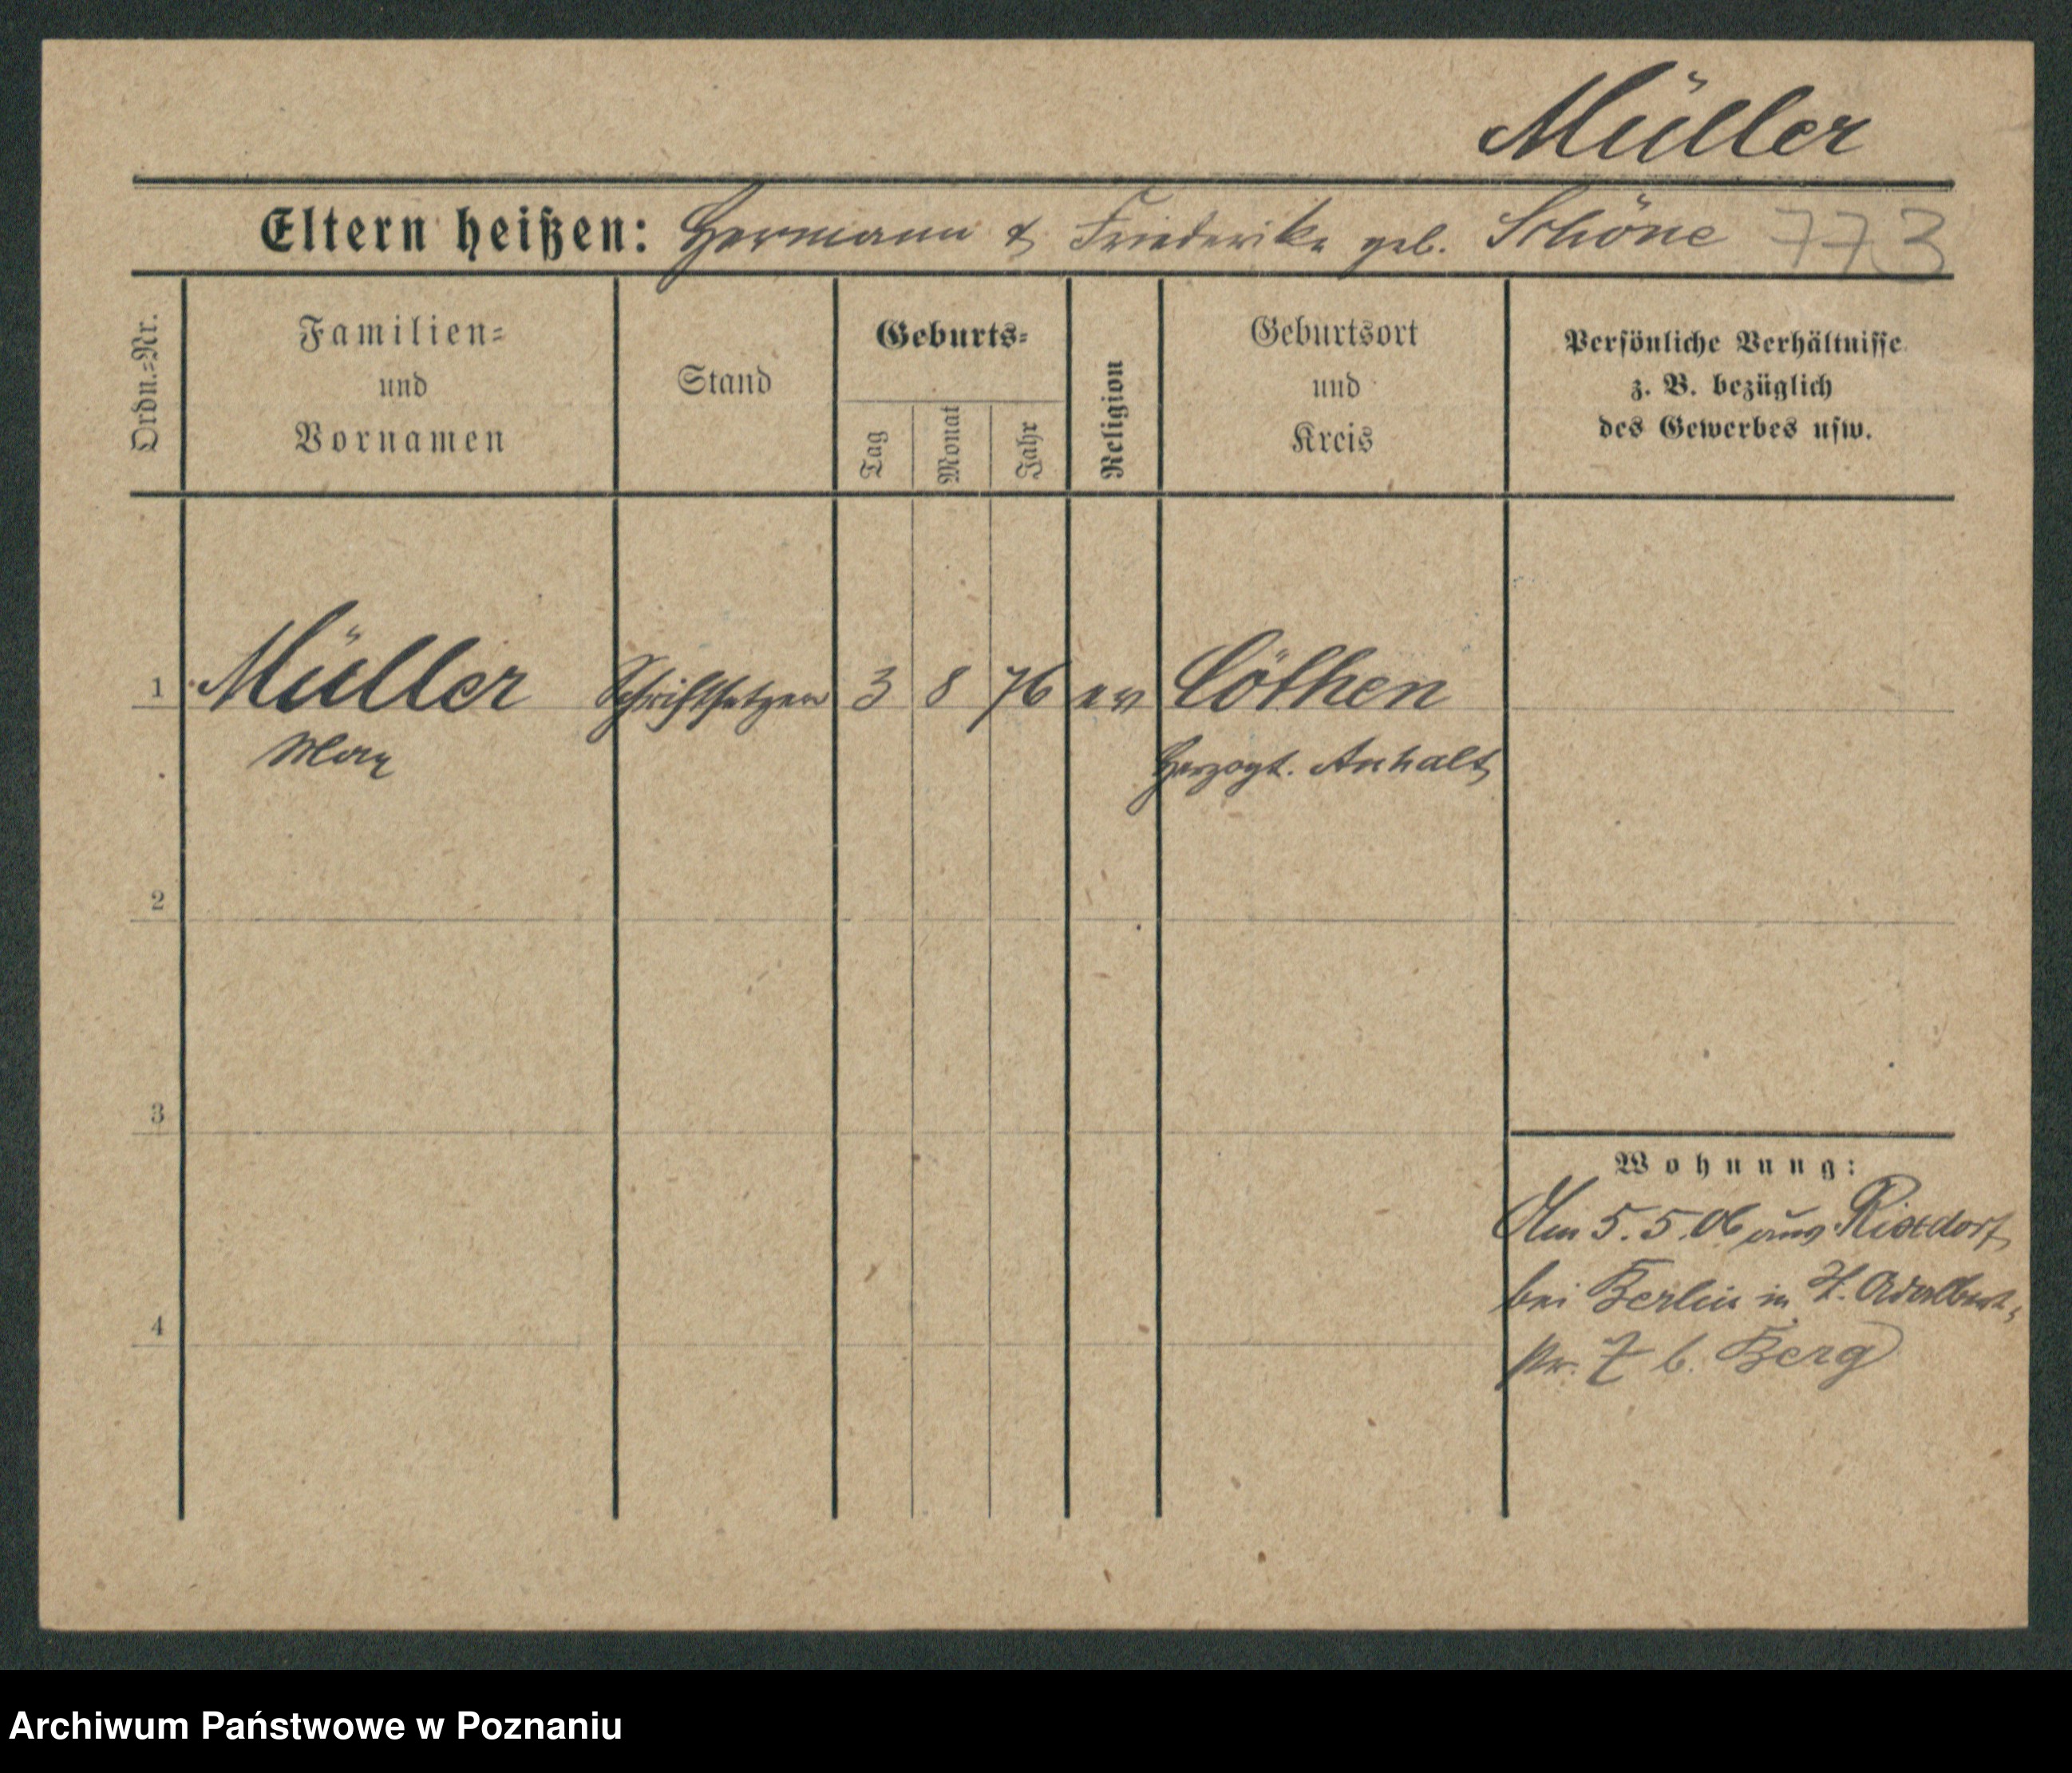 Müller
Eltern heißen: Hermann & Friederike geb. Schöne 773
Ordn.-Nr.
Familien-
und
Vornamen
Stand
Geburts-
Tag
Monat
Jahr
Religion
Geburtsort
und
Kreis
Persönliche Verhältnisse
z. B. bezüglich
des Gewerbes usw.
1 Müller Schriftsetzer 3 8 76 ev Cöthen
Max Herzogt. Anhalt
2
3
4
Wohnung:
Am 5.5.06 aus Rixdorf
bei Berlin in St. Adalbert-
str. 7 b. Berg
Archiwum Państwowe w Poznaniu